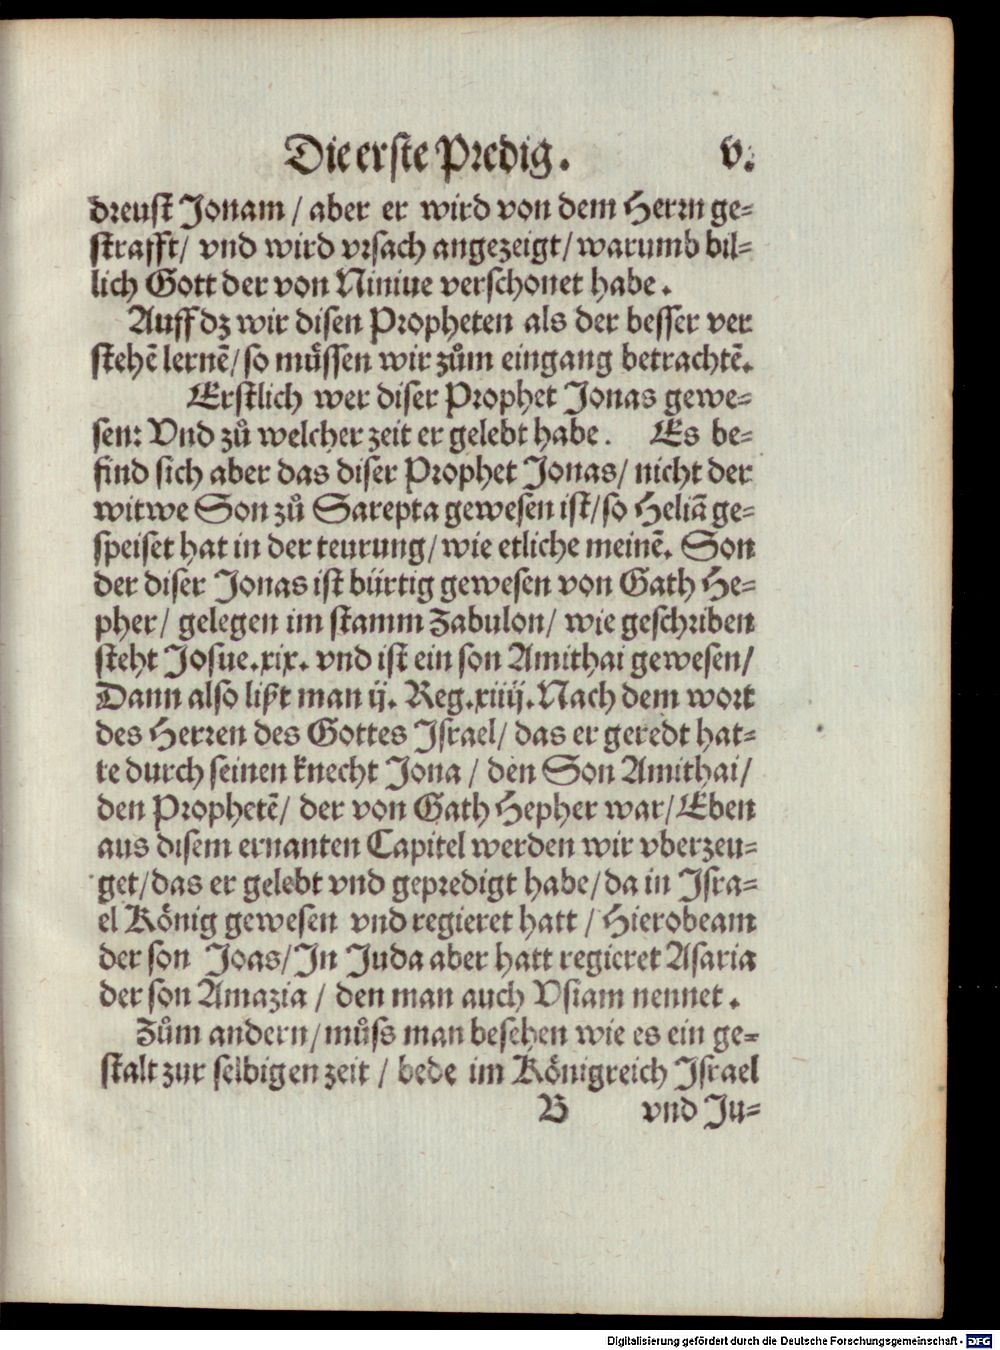 Die erste Predig. v.
dreust Jonam / aber er wird von dem Herrn ge=
strafft/ vnd wird vrsach angezeigt/ warumb bil=
lich Gott der von Niniue verschonet habe.
Auff dz wir disen Propheten als der besser ver
stehẽ lernẽ/ so müssen wir zům eingang betrachtẽ.
Erstlich wer diser Prophet Jonas gewe=
sen: Vnd zů welcher zeit er gelebt habe. Es be=
find sich aber das diser Prophet Jonas/ nicht der
witwe Son zů Sarepta gewesen ist/ so Heliã ge=
speiset hat in der teurung/ wie etliche meinẽ. Son
der diser Jonas ist bürtig gewesen von Gath He=
pher/ gelegen im stamm Zabulon/ wie geschriben
steht Josue.xix. vnd ist ein son Amithai gewesen/
Dann also lißt man ij. Reg.xiiij. Nach dem wort
des Herren des Gottes Israel/ das er geredt hat=
te durch seinen knecht Jona / den Son Amithai/
den Prophetẽ/ der von Gath Hepher war/ Eben
aus disem ernanten Capitel werden wir vberzeu=
get/ das er gelebt vnd gepredigt habe/ da in Isra=
el König gewesen vnd regieret hatt / Hierobeam
der son Joas/ In Juda aber hatt regieret Asaria
der son Amazia / den man auch Vsiam nennet.
Zům andern/ můss man besehen wie es ein ge=
stalt zur selbigen zeit / bede im Königreich Israel
B vnd Ju=
Digitalisierung gefördert durch die Deutsche Forschungsgemeinschaft - DFG